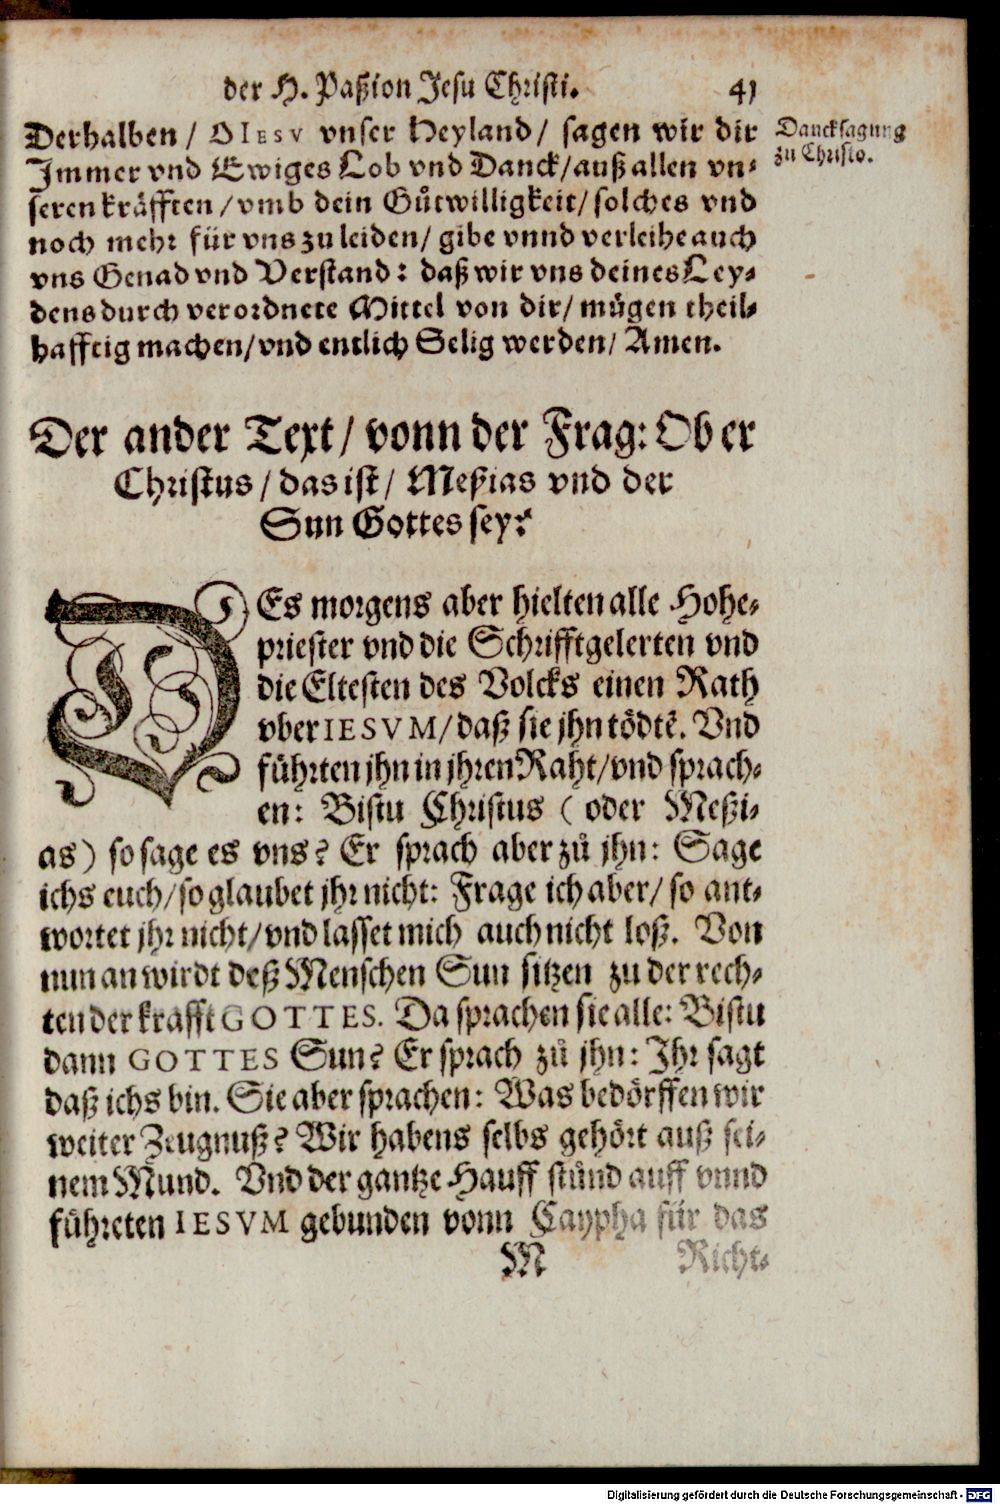 der H. Paßion Jesu Christi. 41
Derhalben / O IESV vnser Heyland / sagen wir dir
Immer vnd Ewiges Lob vnd Danck / auß allen vn-
seren kräfften / vmb dein Gůtwilligkeit / solches vnd
noch mehr für vns zu leiden / gibe vnnd verleihe auch
vns Genad vnd Verstand: daß wir vns deines Ley-
dens durch verordnete Mittel von dir / mügen theil-
hafftig machen / vnd entlich Selig werden / Amen.
Dancksagung
zu Christo.
Der ander Text / vonn der Frag: Ob er
Christus / das ist / Meßias vnd der
Sun Gottes sey?
DEs morgens aber hielten alle Hohe-
priester vnd die Schrifftgelerten vnd
die Eltesten des Volcks einen Rath
vber IESVM / daß sie jhn tödtē. Vnd
führten jhn in jhren Raht / vnd sprach-
en: Bistu Christus ( oder Meßi-
as ) so sage es vns? Er sprach aber zů jhn: Sage
ichs euch / so glaubet jhr nicht: Frage ich aber / so ant-
wortet jhr nicht / vnd lasset mich auch nicht loß. Von
nun an wirdt deß Menschen Sun sitzen zu der rech-
ten der krafft GOTTES. Da sprachen sie alle: Bistu
dann GOTTES Sun? Er sprach zů jhn: Ihr sagt
daß ichs bin. Sie aber sprachen: Was bedörffen wir
weiter Zeugnuß? Wir habens selbs gehört auß sei-
nem Mund. Vnd der gantze Hauff stůnd auff vnnd
führeten IESVM gebunden vonn Caypha für das
M Richt-
Digitalisierung gefördert durch die Deutsche Forschungsgemeinschaft - DFG